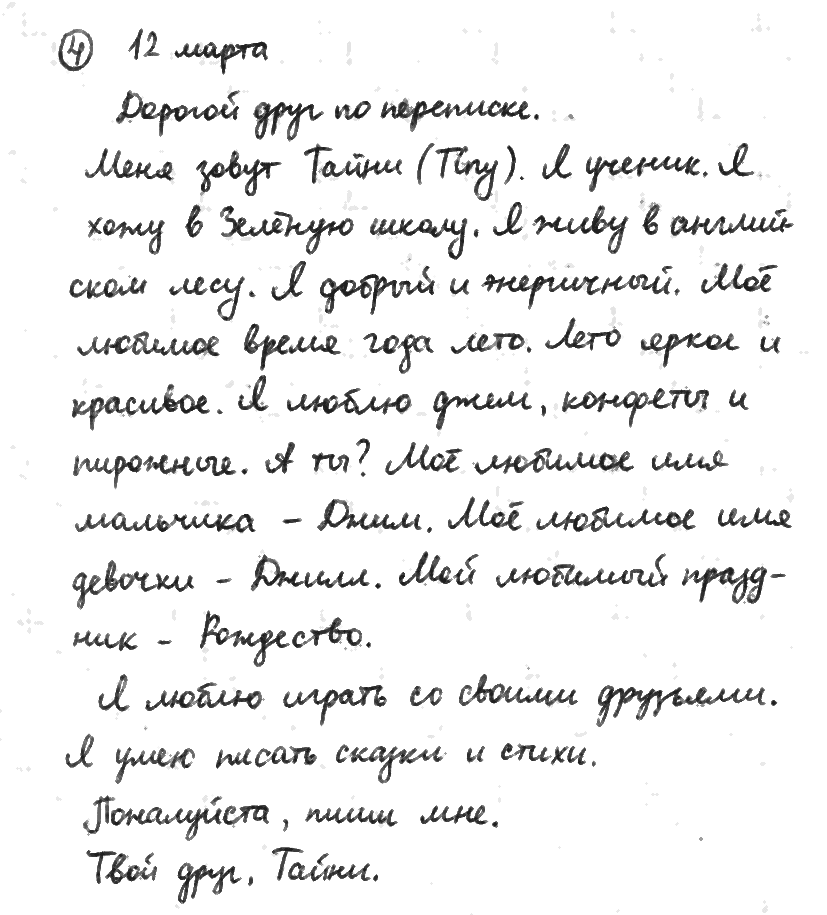 ④ 12 марта
Дорогой друг по переписке.
Меня зовут Тайни (Tiny). Я ученик. Я
хожу в Зелёную школу. Я живу в англий-
ском лесу. Я добрый и энергичный. Моё
любимое время года лето. Лето яркое и
красивое. Я люблю джем, конфеты и
пирожные. А ты? Моё любимое имя
мальчика – Джим. Моё любимое имя
девочки – Джилл. Мой любимый празд-
ник – Рождество.
Я люблю играть со своими друзьями.
Я умею писать сказки и стихи.
Пожалуйста, пиши мне.
Твой друг, Тайни.